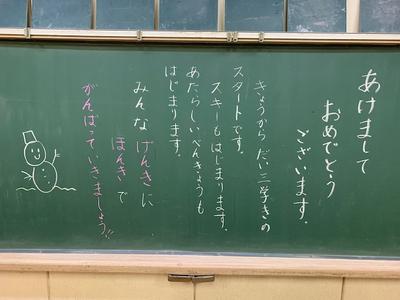 あけまして
おめでとう
ございます。
きょうから だい三学きの
スタートです。
スキーもはじまります。
あたらしいべんきょうも
はじまります。
みんな げんきに
ほんきで
がんばって いきましょう!!